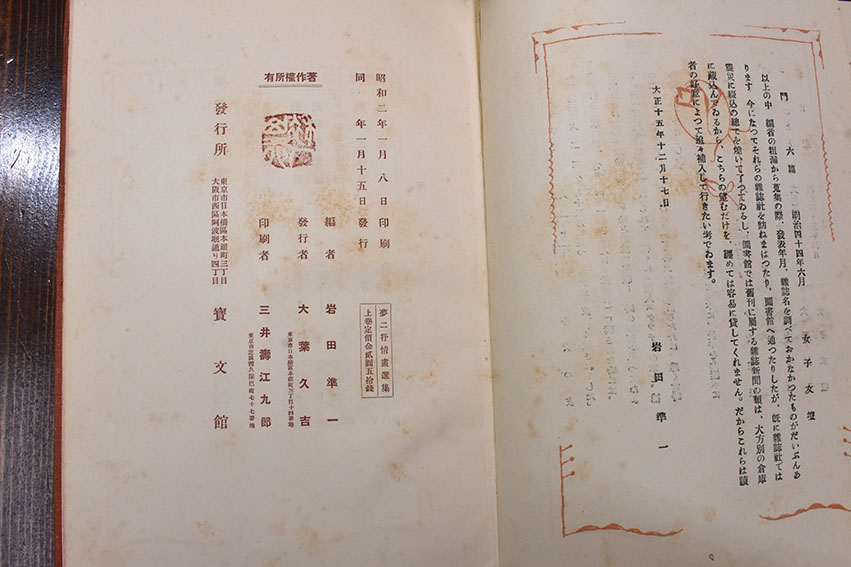 門　六篇　明治四十四年六月　女子文壇
以上の中　編者の粗漏から蒐集の際、發表年月、雜誌名を調べておかなかつたものがだいぶんあ
ります　今になつてそれらの雜誌社を訪ねまはつたり、圖書館へ通つたりしたが、既に雜誌社では
震災に綴込の總てを燒いて了つてゐるし、圖書館では舊刊に屬する雜誌新聞の類は、大方別の倉庫
に藏込んでゐるから、こちらの望むだけを、纒めては容易に貸してくれません。だからこれらは讀
者の好意によつて追々補入して行きたい考でゐます。
大正十五年十二月十七日
岩田準一
夢二抒情畫選集
上卷定價金貳圓五拾錢
昭和二年一月八日印刷
同　年一月十五日發行
著作權所有
編者　岩田準一
發行者　大葉久吉
東京市日本橋區本銀町三丁目十四番地
印刷者　三井壽江九郎
東京市芝區西久保巴町七十七番地
發行所
東京市日本橋區本銀町三丁目
大阪市西區阿波堀通り四丁目
寳文館